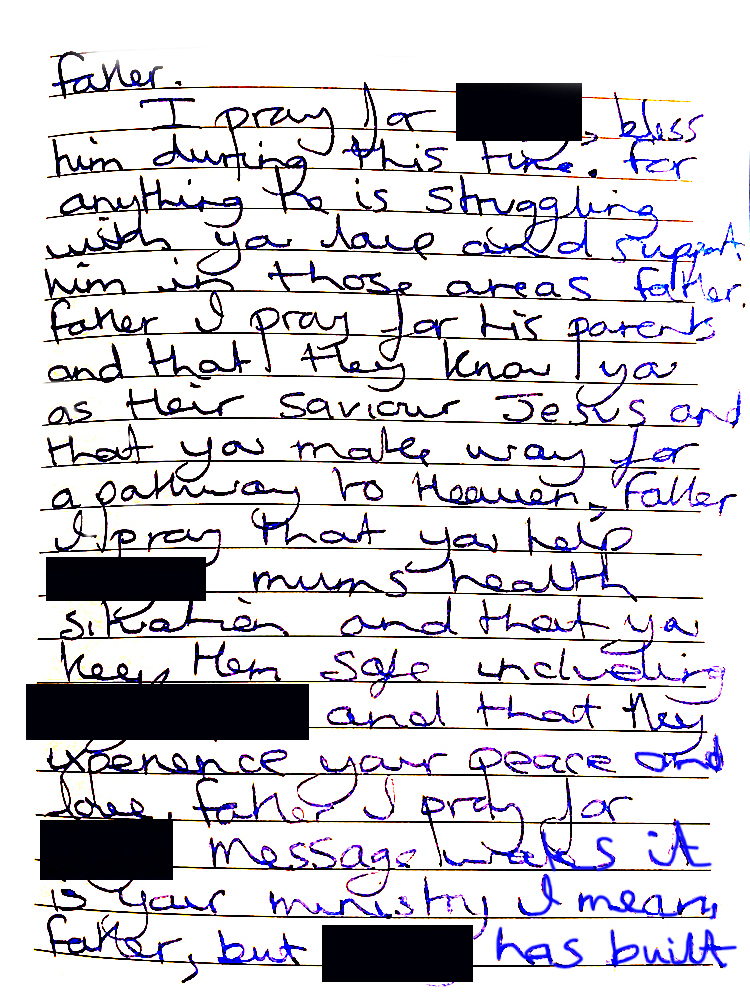 father.
I pray for , bless
him during this time. for
anything he is struggling
with you love and support
him in those areas father.
father I pray for his parents
and that they know you
as their saviour Jesus and
that you make way for
a pathway to Heaven, Father
I pray that you help
mums health
situation and that you
keep them safe including
and that they
experience your peace and
love. father I pray for
message it
is your ministry I mean,
father, but has built